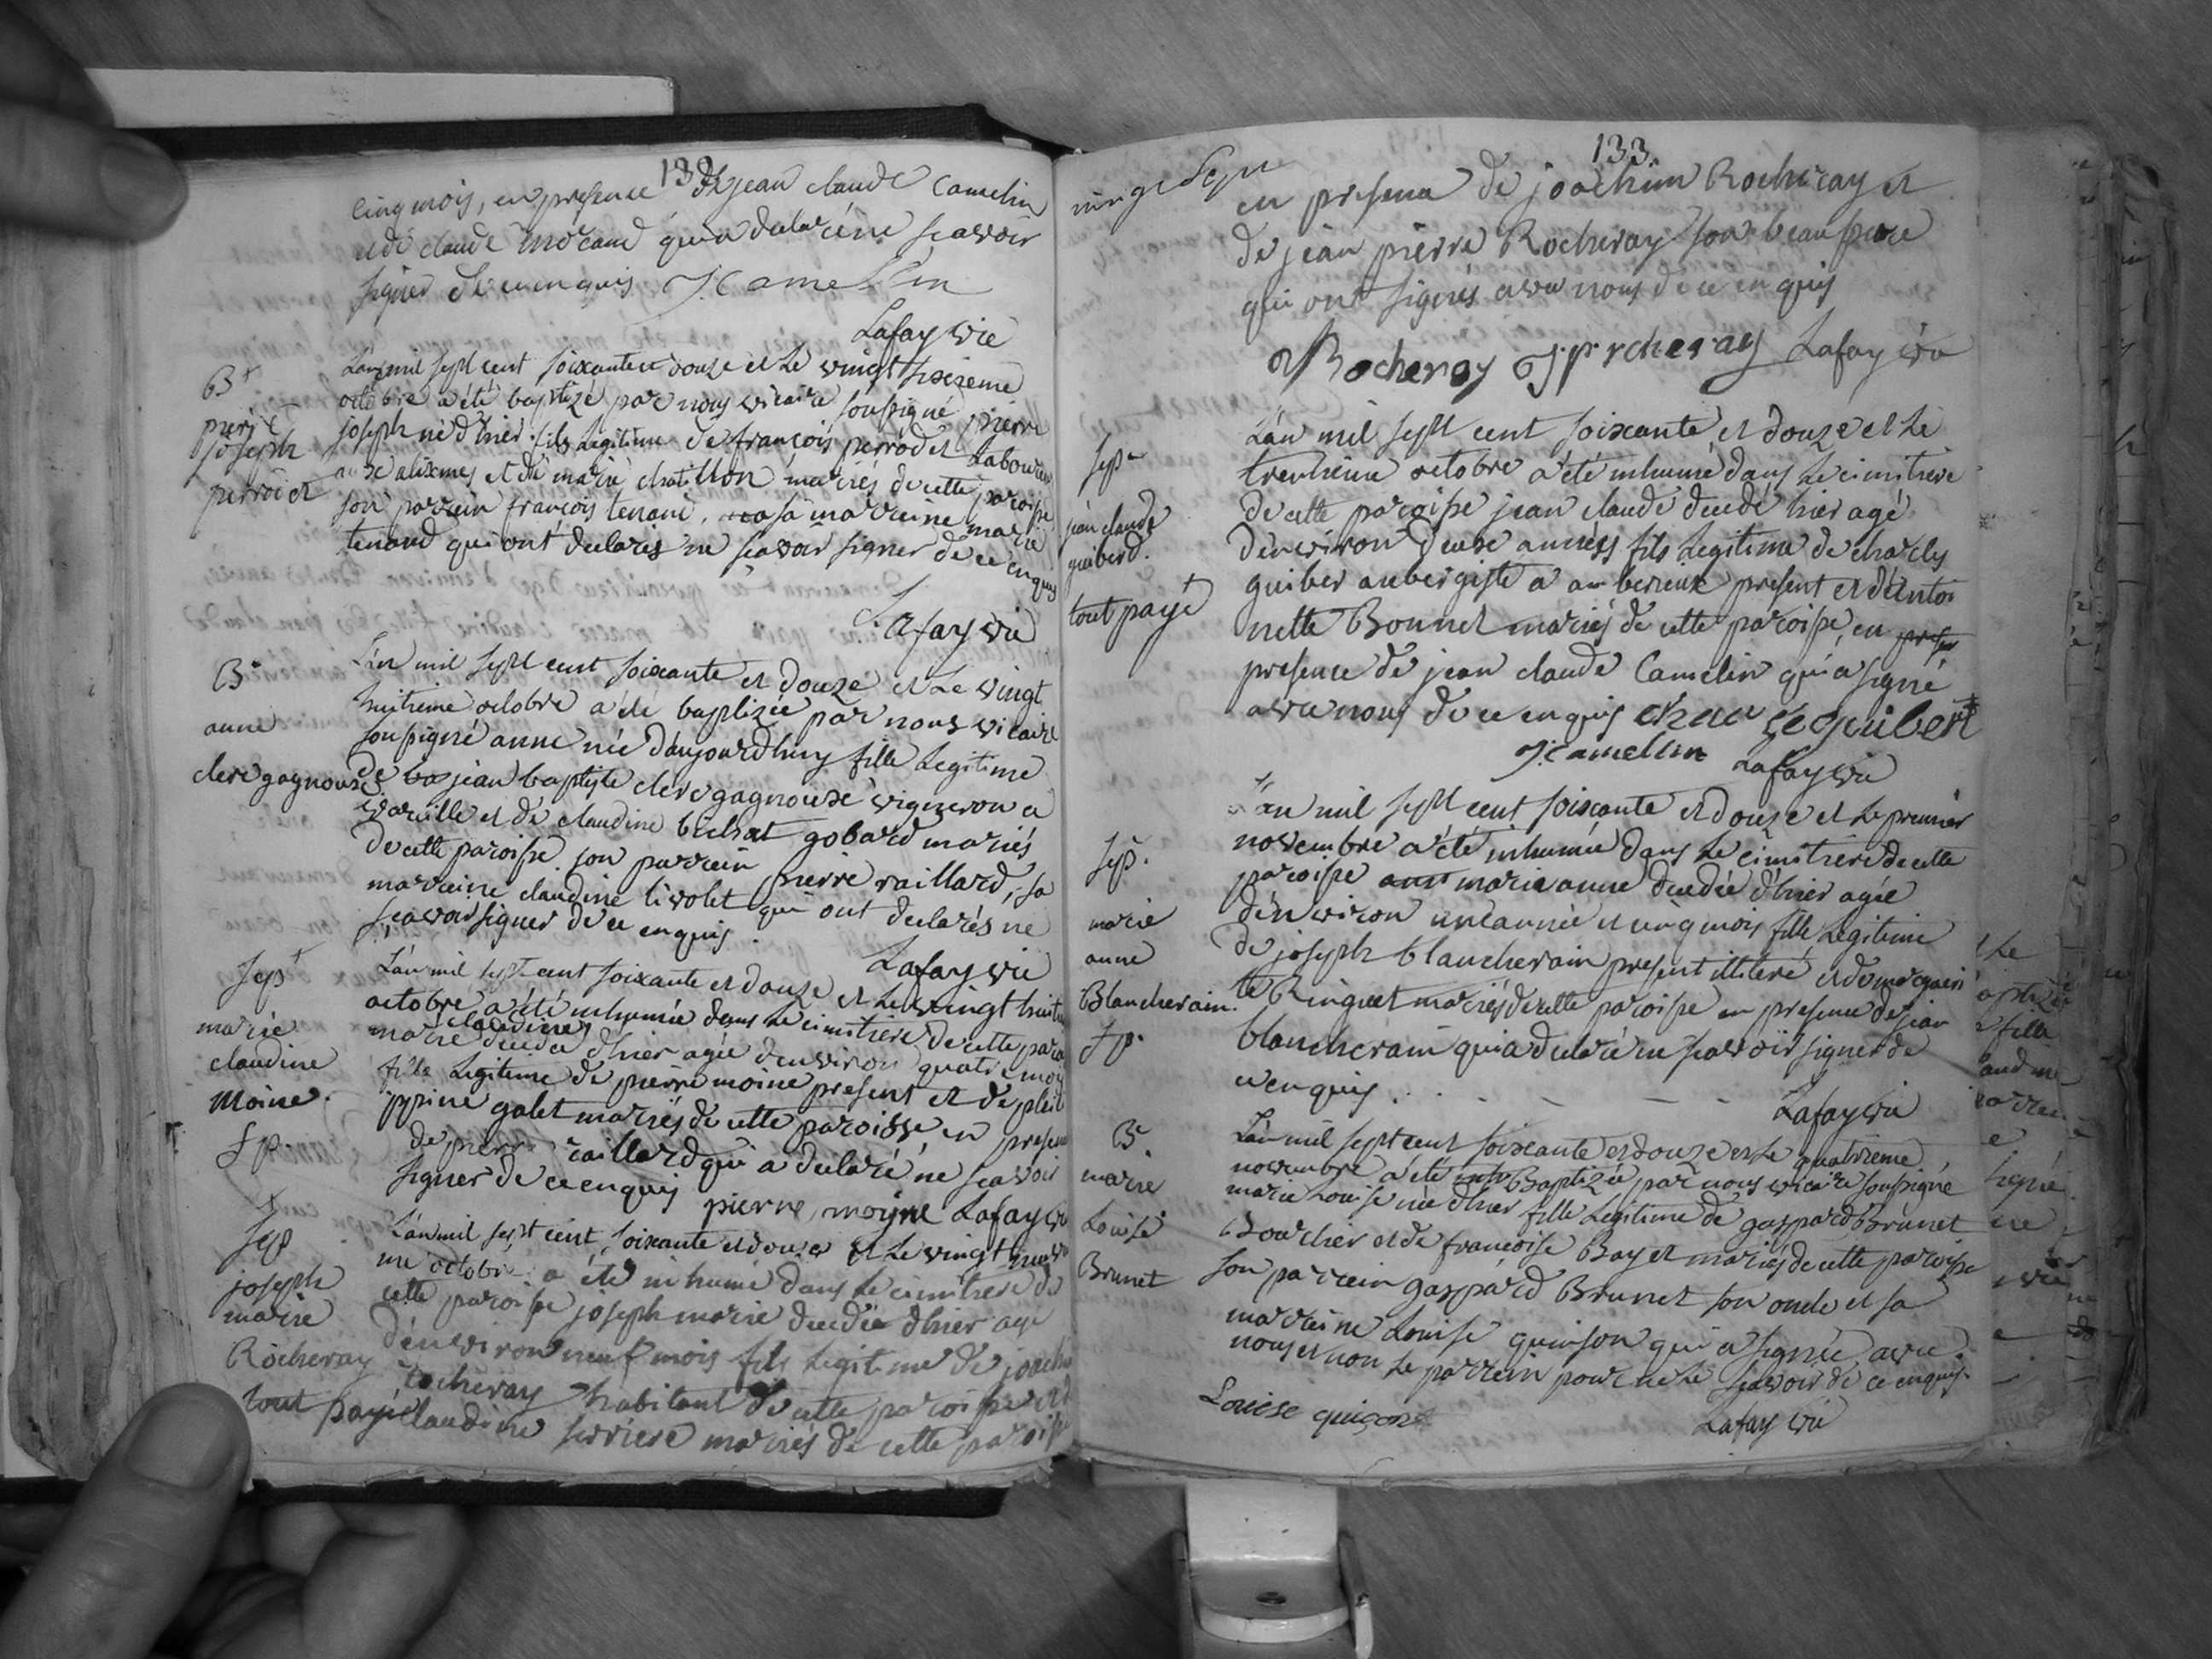 132
cinq mois, en presence de jean claude Camelin
et de claude morand qui a declaré ne scavoir
signer de ce enquis J Camellin
Lafay vic
Bt
pierre
joseph
perrodet
L'an mil sept cent soixante et douze et le vingt sixieme
octobre a été baptizé par nous vicaire soussigné pierre
joseph né d'hier fils legitime de françois perrodet laboureur
aux alixmes et de marie chatillon mariés de cette paroisse
son parrein françois tenand, sa marreine marie
tenand qui ont declarés ne scavoir signer de ce enquis
Lafay vic
Be
anne
clerc gagnouse
L'an mil sept cent soixante et douze et le vingt
huitieme octobre a été baptizée par nous vicaire
soussigné anne née d'aujourdhuy fille legitime
de jean baptiste clerc gagnouse vigneron a
vareille et de claudine bichat gobard mariés
de cette paroisse son parrein pierre raillard, sa
marreine claudine livolet qui ont declarés ne
scavoir signer de ce enquis
Lafay vic
Sept
marie
claudine
Moine.
f p.
L'an mil sept cent soixante et douze et le vingt huit
octobre a été inhumée dans le cimitiere de cette paroi
claudine
marie decedée d'hier agée d'environ quatre mois
fille legitime de pierre moine present et de phili
ppine galet mariés de cette paroisse en presen
de pierre raillard qui a declaré ne scavoir
signer de ce enquis pierre moyne Lafay vic
Sep
joseph
marie
Rocheray
tout payé
L'an mil sept cent soixante et douze et le vingt neuvie
me octobre a été inhumé dans le cimitiere de
cette paroisse joseph marie decedé d'hier agé
d'environ neuf mois fils legitime de joachim
rocheray habitant de cette paroisse et de
claudine serriere mariés de cette paroisse
133
en presence de joachim Rocheray et
de jean pierre Rocheray son beau frere
qui ont signés avec nous de ce enquis
Rocheray J pr rcheray Lafay vic
Sepr
jean claude
guiberd.
tout payé
L'an mil sept cent soixante et douze et le
trentieme octobre a été inhumé dans le cimitiere
de cette paroisse jean claude decedé hier agé
d'environ deux années fils legitime de charles
guiber aubergiste a amberieux present et d'antoi
nette Bonnet mariés de cette paroisse, en presen
presence de jean claude Camelin qui a signé
avec nous de ce enquis guibert
J Camellin Lafay vic
Sep.
marie
anne
Blancherain.
f p.
L'an mil sept cent soixante et douze et le premier
novembre a été inhumée dans le cimitiere de cette
paroisse ann marie anne decedée d'hier agée
d'environ une année et cinq mois fille legitime
de joseph blancherain present illiteré et de margueri
te Ringuet mariés de cette paroisse en presence de jean
blancherain qui a declaré ne scavoir signer de
ce enquis
Lafay vic
Be
marie
Louise
Brunet
L'an mil sept cent soixante et douze et le quatrieme
novembre a été inh Baptizée par nous vicaire soussigné
marie Louise née d'hier fille legitime de gaspard Brunet
Boucher et de francoise Bayet mariés de cette paroisse
son parrein gaspard Brunet son oncle et sa
marreine Louise quinson qui a signée avec
nous et non le parrein pour ne le scavoir de ce enquis.
Louise quison
Lafay vic